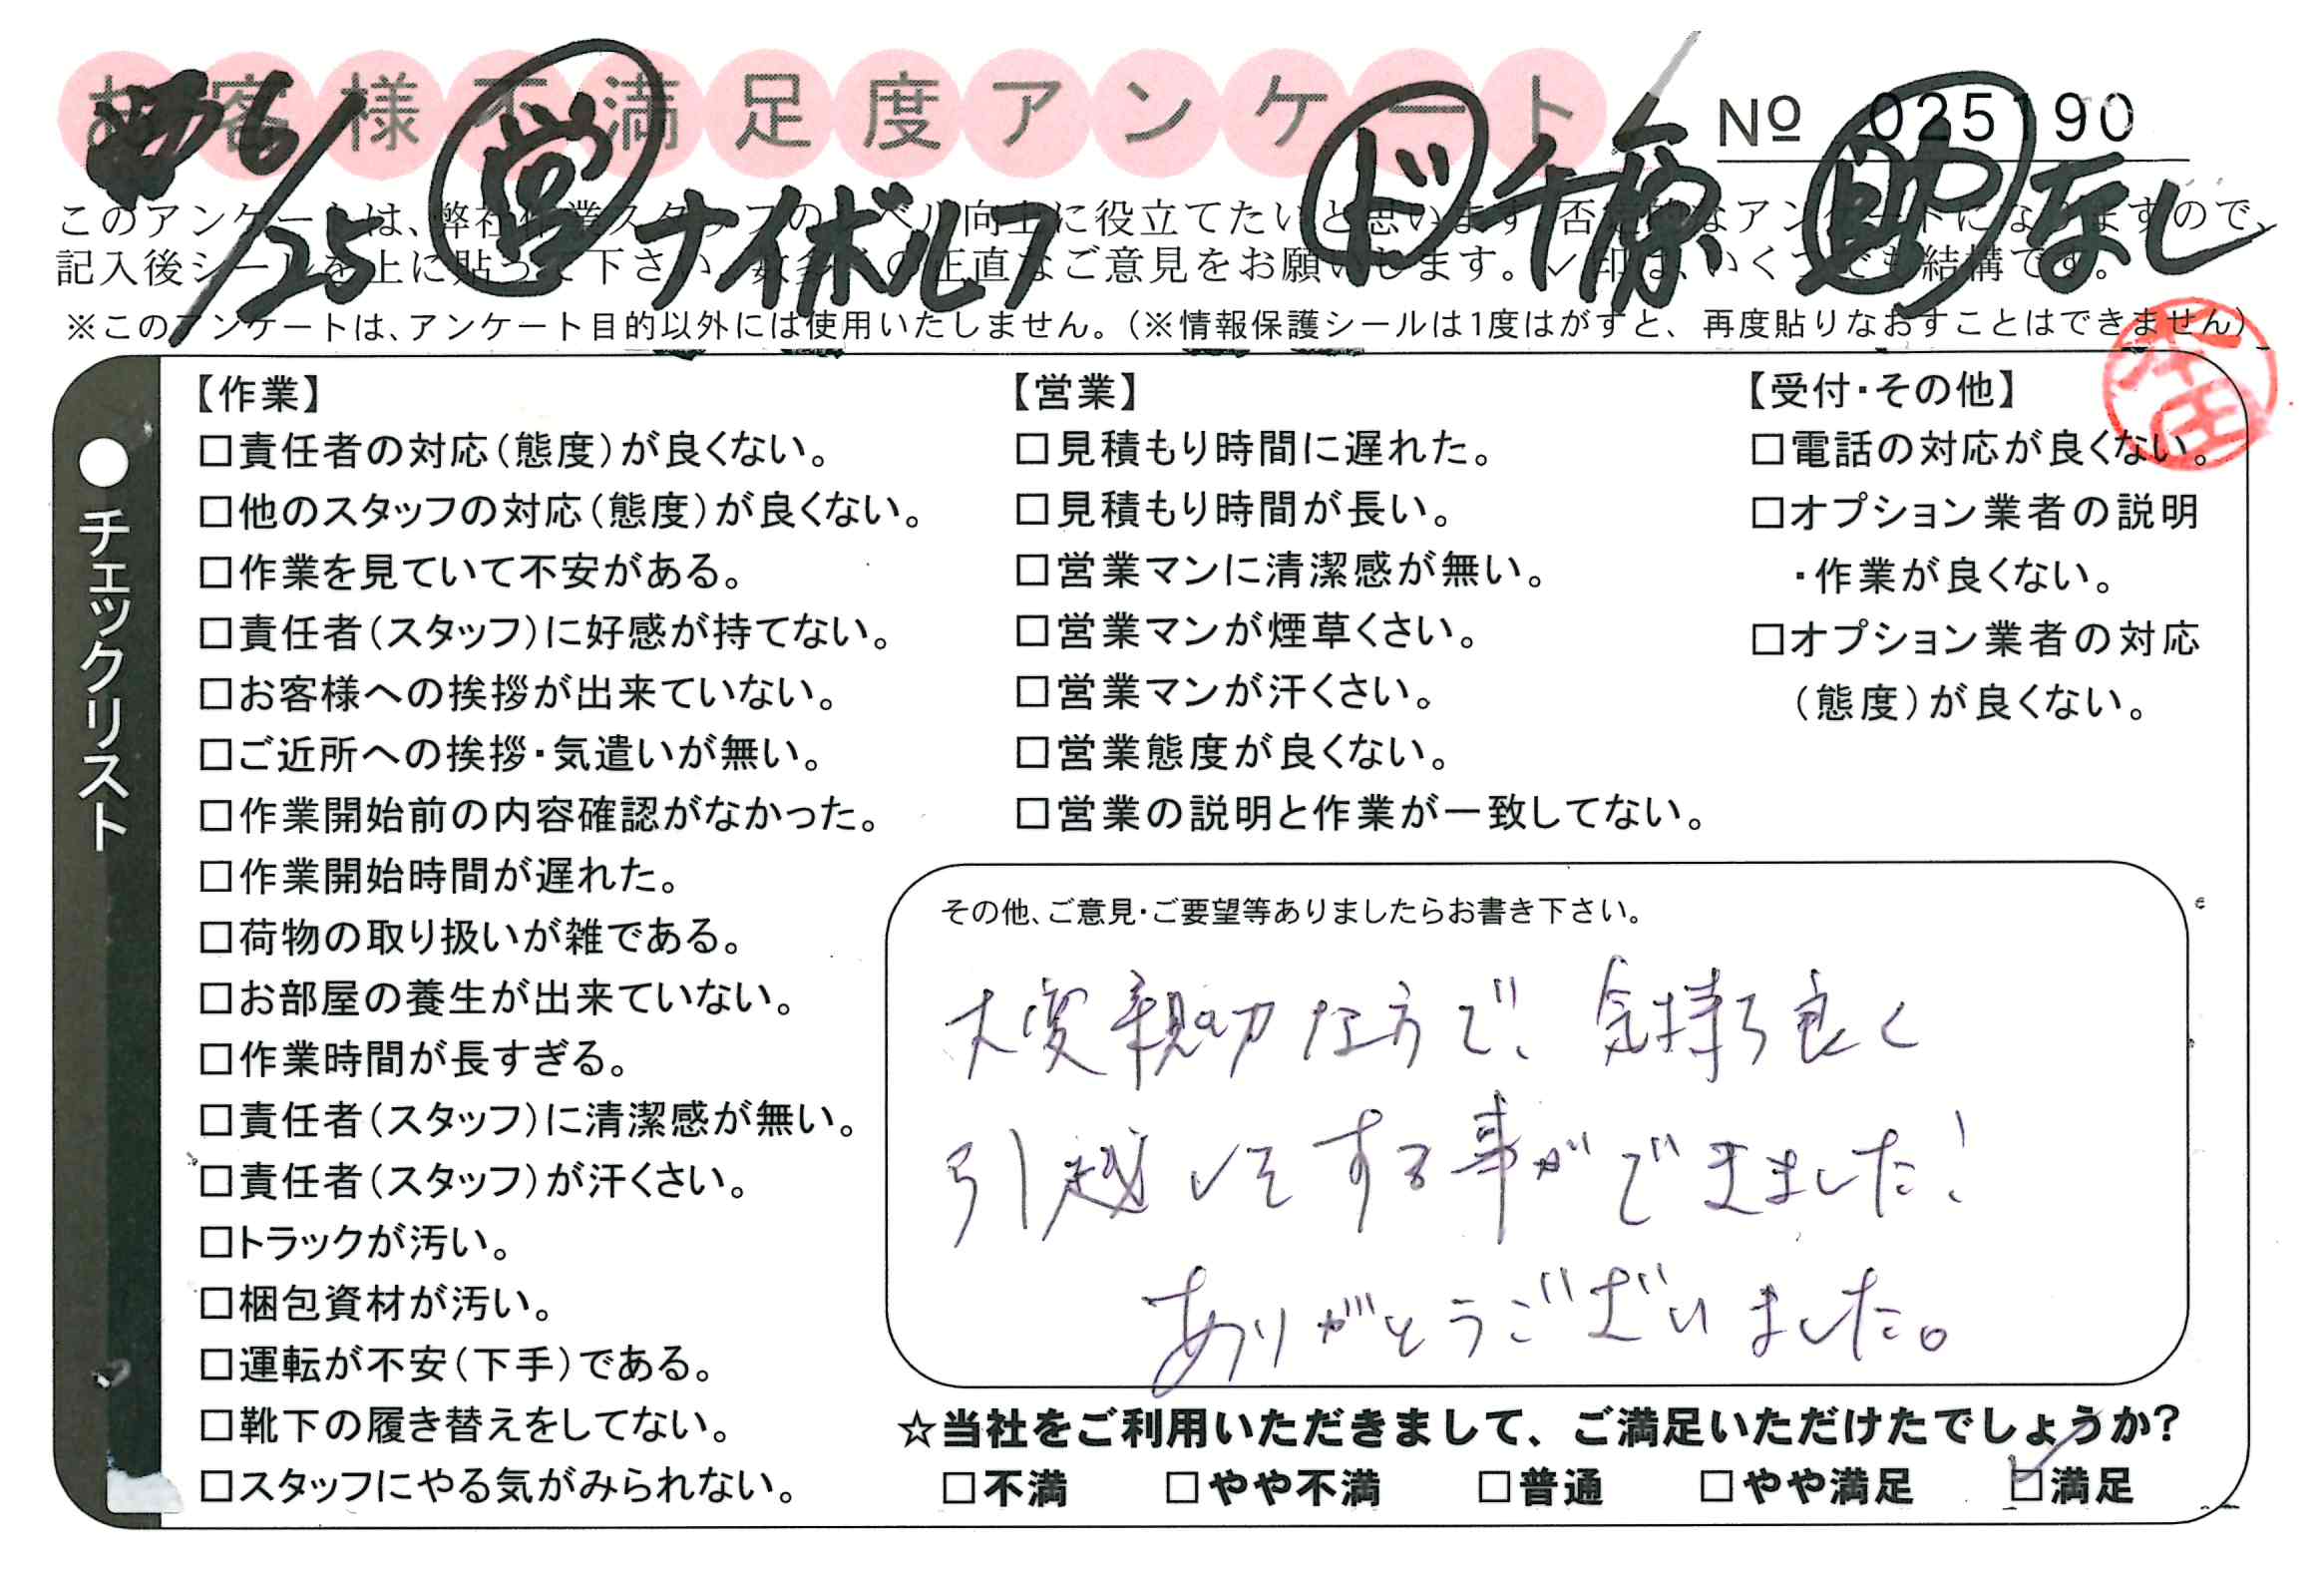 お客様不満足度アンケート
№ 025190
6/25 営 ナイボルフ ド 千原 助 なし
このアンケートは、弊社作業スタッフのレベル向上に役立てたいと思います。否定的なアンケートになりますので、
記入後シールを上に貼って下さい。数多くの正直なご意見をお願いします。✓印は、いくつでも結構です。
※このアンケートは、アンケート目的以外には使用いたしません。(※情報保護シールは1度はがすと、再度貼りなおすことはできません)
●チェックリスト
【作業】
□責任者の対応(態度)が良くない。
□他のスタッフの対応(態度)が良くない。
□作業を見ていて不安がある。
□責任者(スタッフ)に好感が持てない。
□お客様への挨拶が出来ていない。
□ご近所への挨拶・気遣いが無い。
□作業開始前の内容確認がなかった。
□作業開始時間が遅れた。
□荷物の取り扱いが雑である。
□お部屋の養生が出来ていない。
□作業時間が長すぎる。
□責任者(スタッフ)に清潔感が無い。
□責任者(スタッフ)が汗くさい。
□トラックが汚い。
□梱包資材が汚い。
□運転が不安(下手)である。
□靴下の履き替えをしてない。
□スタッフにやる気がみられない。
【営業】
□見積もり時間に遅れた。
□見積もり時間が長い。
□営業マンに清潔感が無い。
□営業マンが煙草くさい。
□営業マンが汗くさい。
□営業態度が良くない。
□営業の説明と作業が一致してない。
【受付・その他】
□電話の対応が良くない。
□オプション業者の説明
・作業が良くない。
□オプション業者の対応
(態度)が良くない。
その他、ご意見・ご要望等ありましたらお書き下さい。
大変親切な方で、気持ち良く
引越しをする事ができました!
ありがとうございました。
☆当社をご利用いただきまして、ご満足いただけたでしょうか?
□不満 □やや不満 □普通 □やや満足 ☑満足